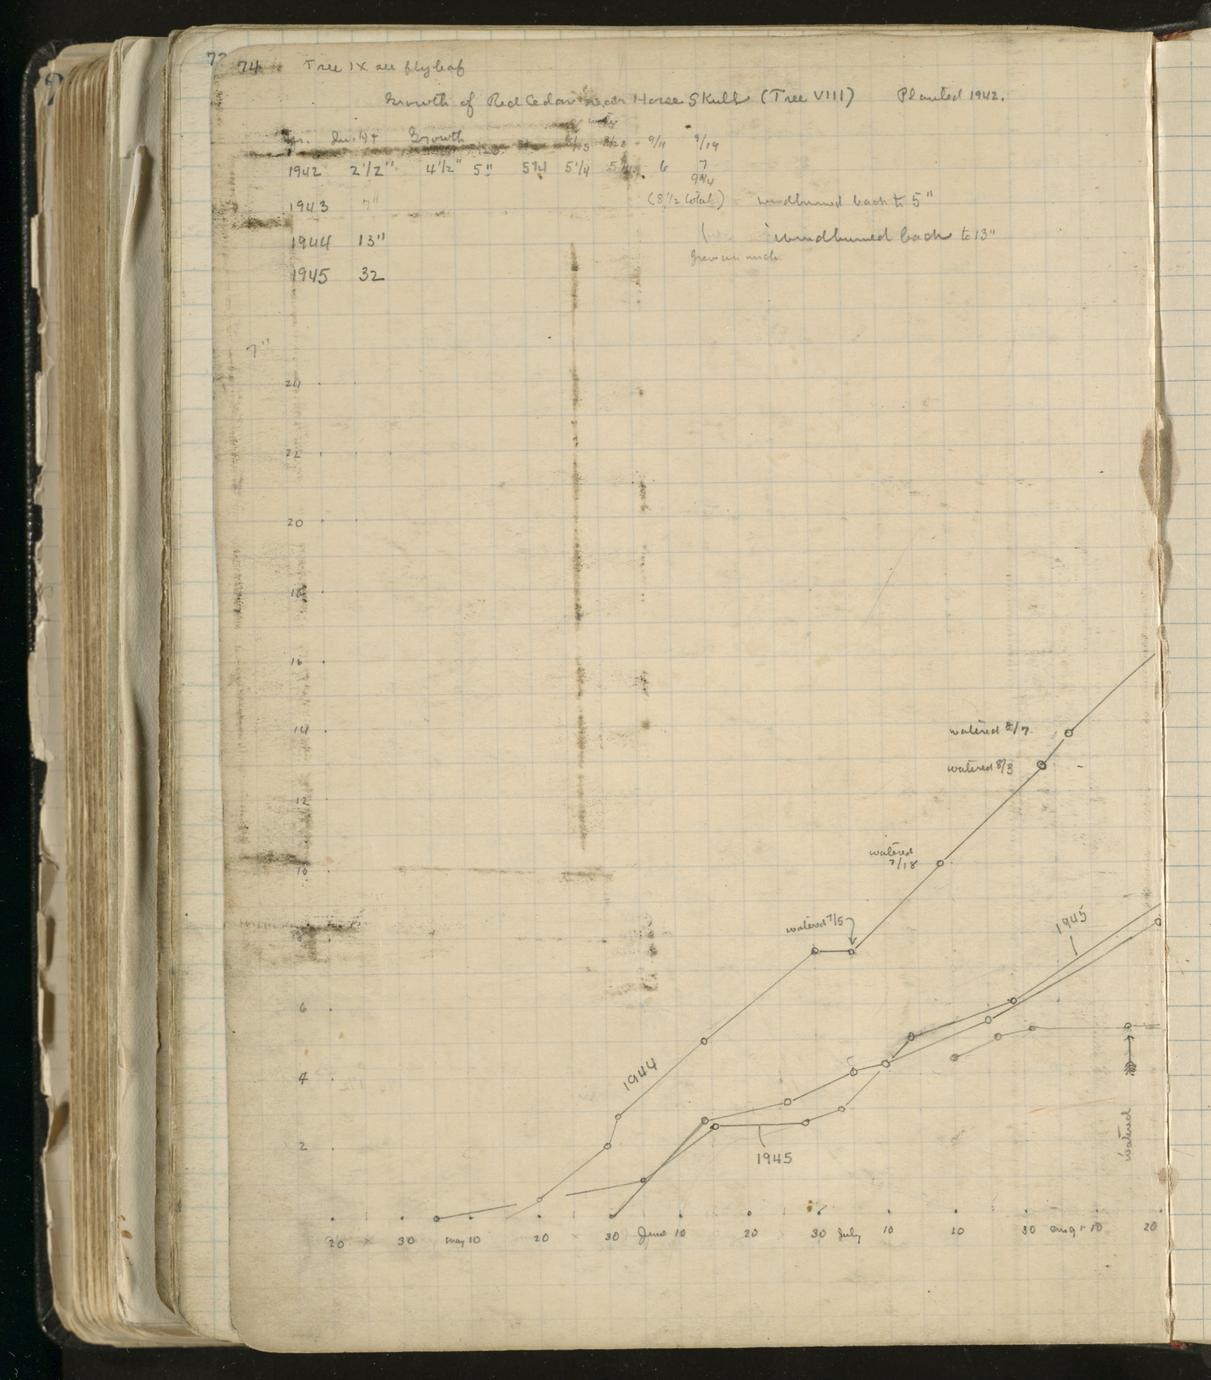 74 Tree IX see flyleaf
Growth of Red Cedar near Horse Skull (Tree VIII) Planted 1942.
Yr. In. Ht Growth 9/11 9/19
1942 2 1/2" 4 1/2" 5" 5 3/4 5 1/4 6 7
9 3/4
1943 7" (8 1/2 total) windburned back to 5"
1944 13" windburned back to 13"
Grew an inch
1945 32
7"
24
22
20
18
16
14 watered 8/7
watered 8/3
12
watered
7/18
10
watered 7/5
1945
6
1944
4
watered
2
1945
20 30 May 10 20 30 June 10 20 30 July 10 20 30 Aug 10 20